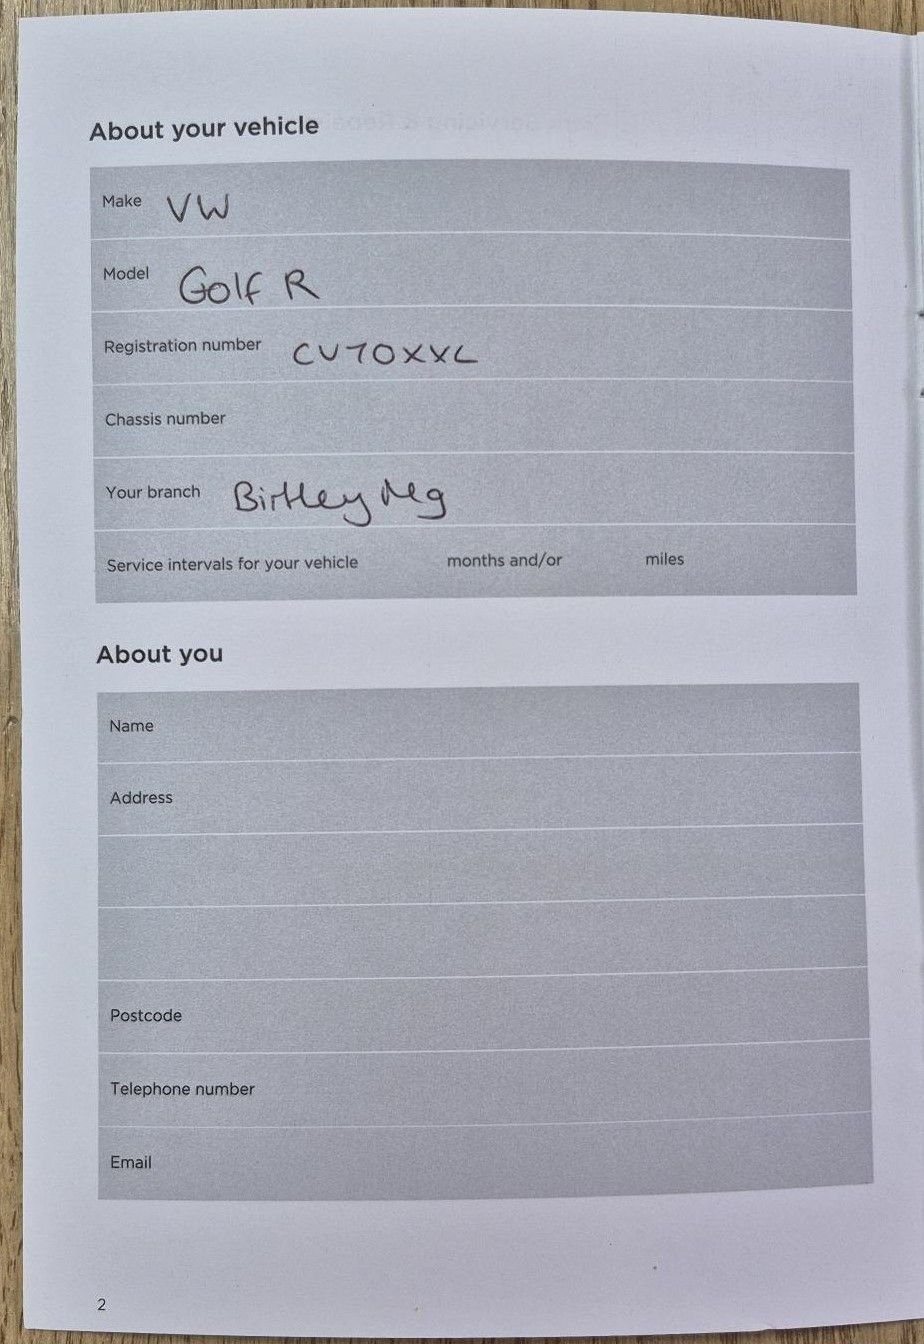 About your vehicle
Make VW
Model Golf R
Registration number CV70XXL
Chassis number
Your branch Birtley Mg
Service intervals for your vehicle months and/or miles
About you
Name
Address
Postcode
Telephone number
Email
2